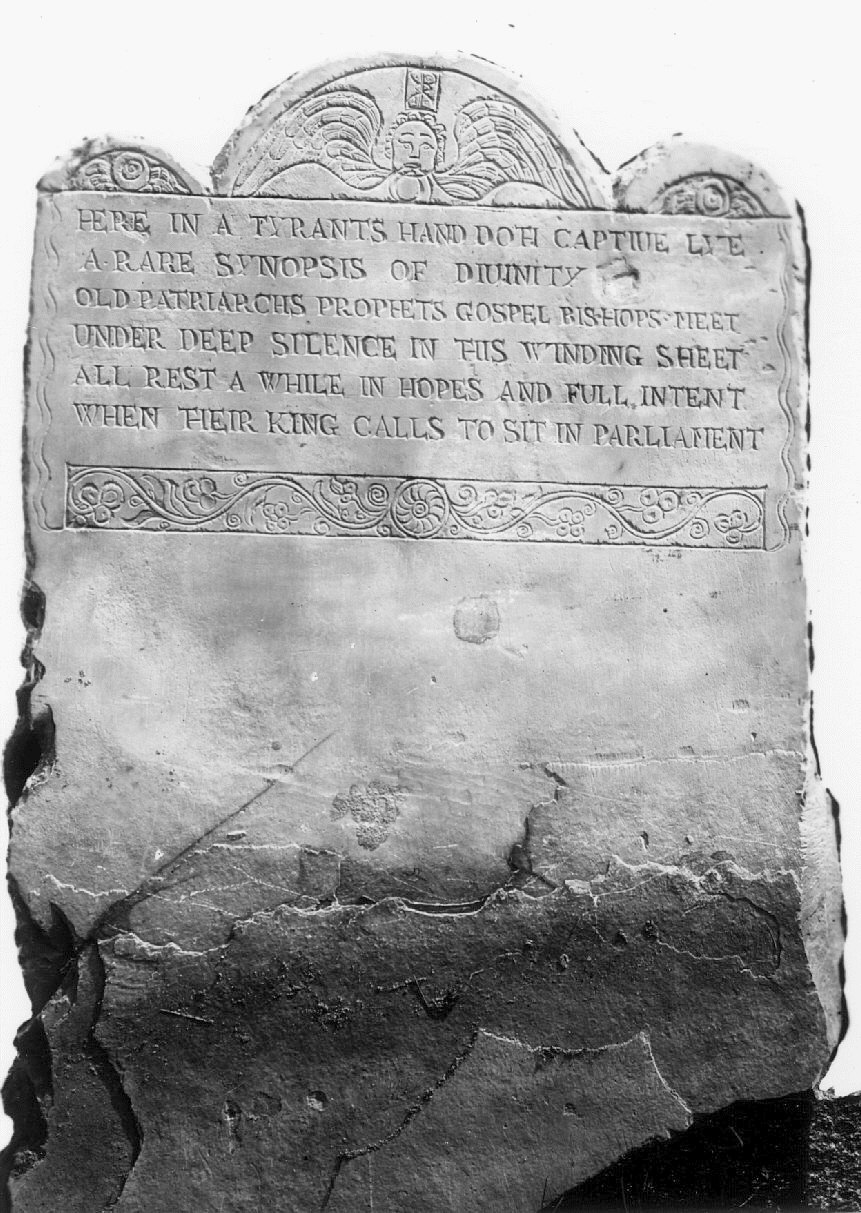 HERE IN A TYRANTS HAND DOTH CAPTIUE LYE
A RARE SYNOPSIS OF DIUINITY
OLD PATRIARCHS PROPHETS GOSPEL BISHOPS MEET
UNDER DEEP SILENCE IN THIS WINDING SHEET
ALL REST A WHILE IN HOPES AND FULL INTENT
WHEN THEIR KING CALLS TO SIT IN PARLIAMENT